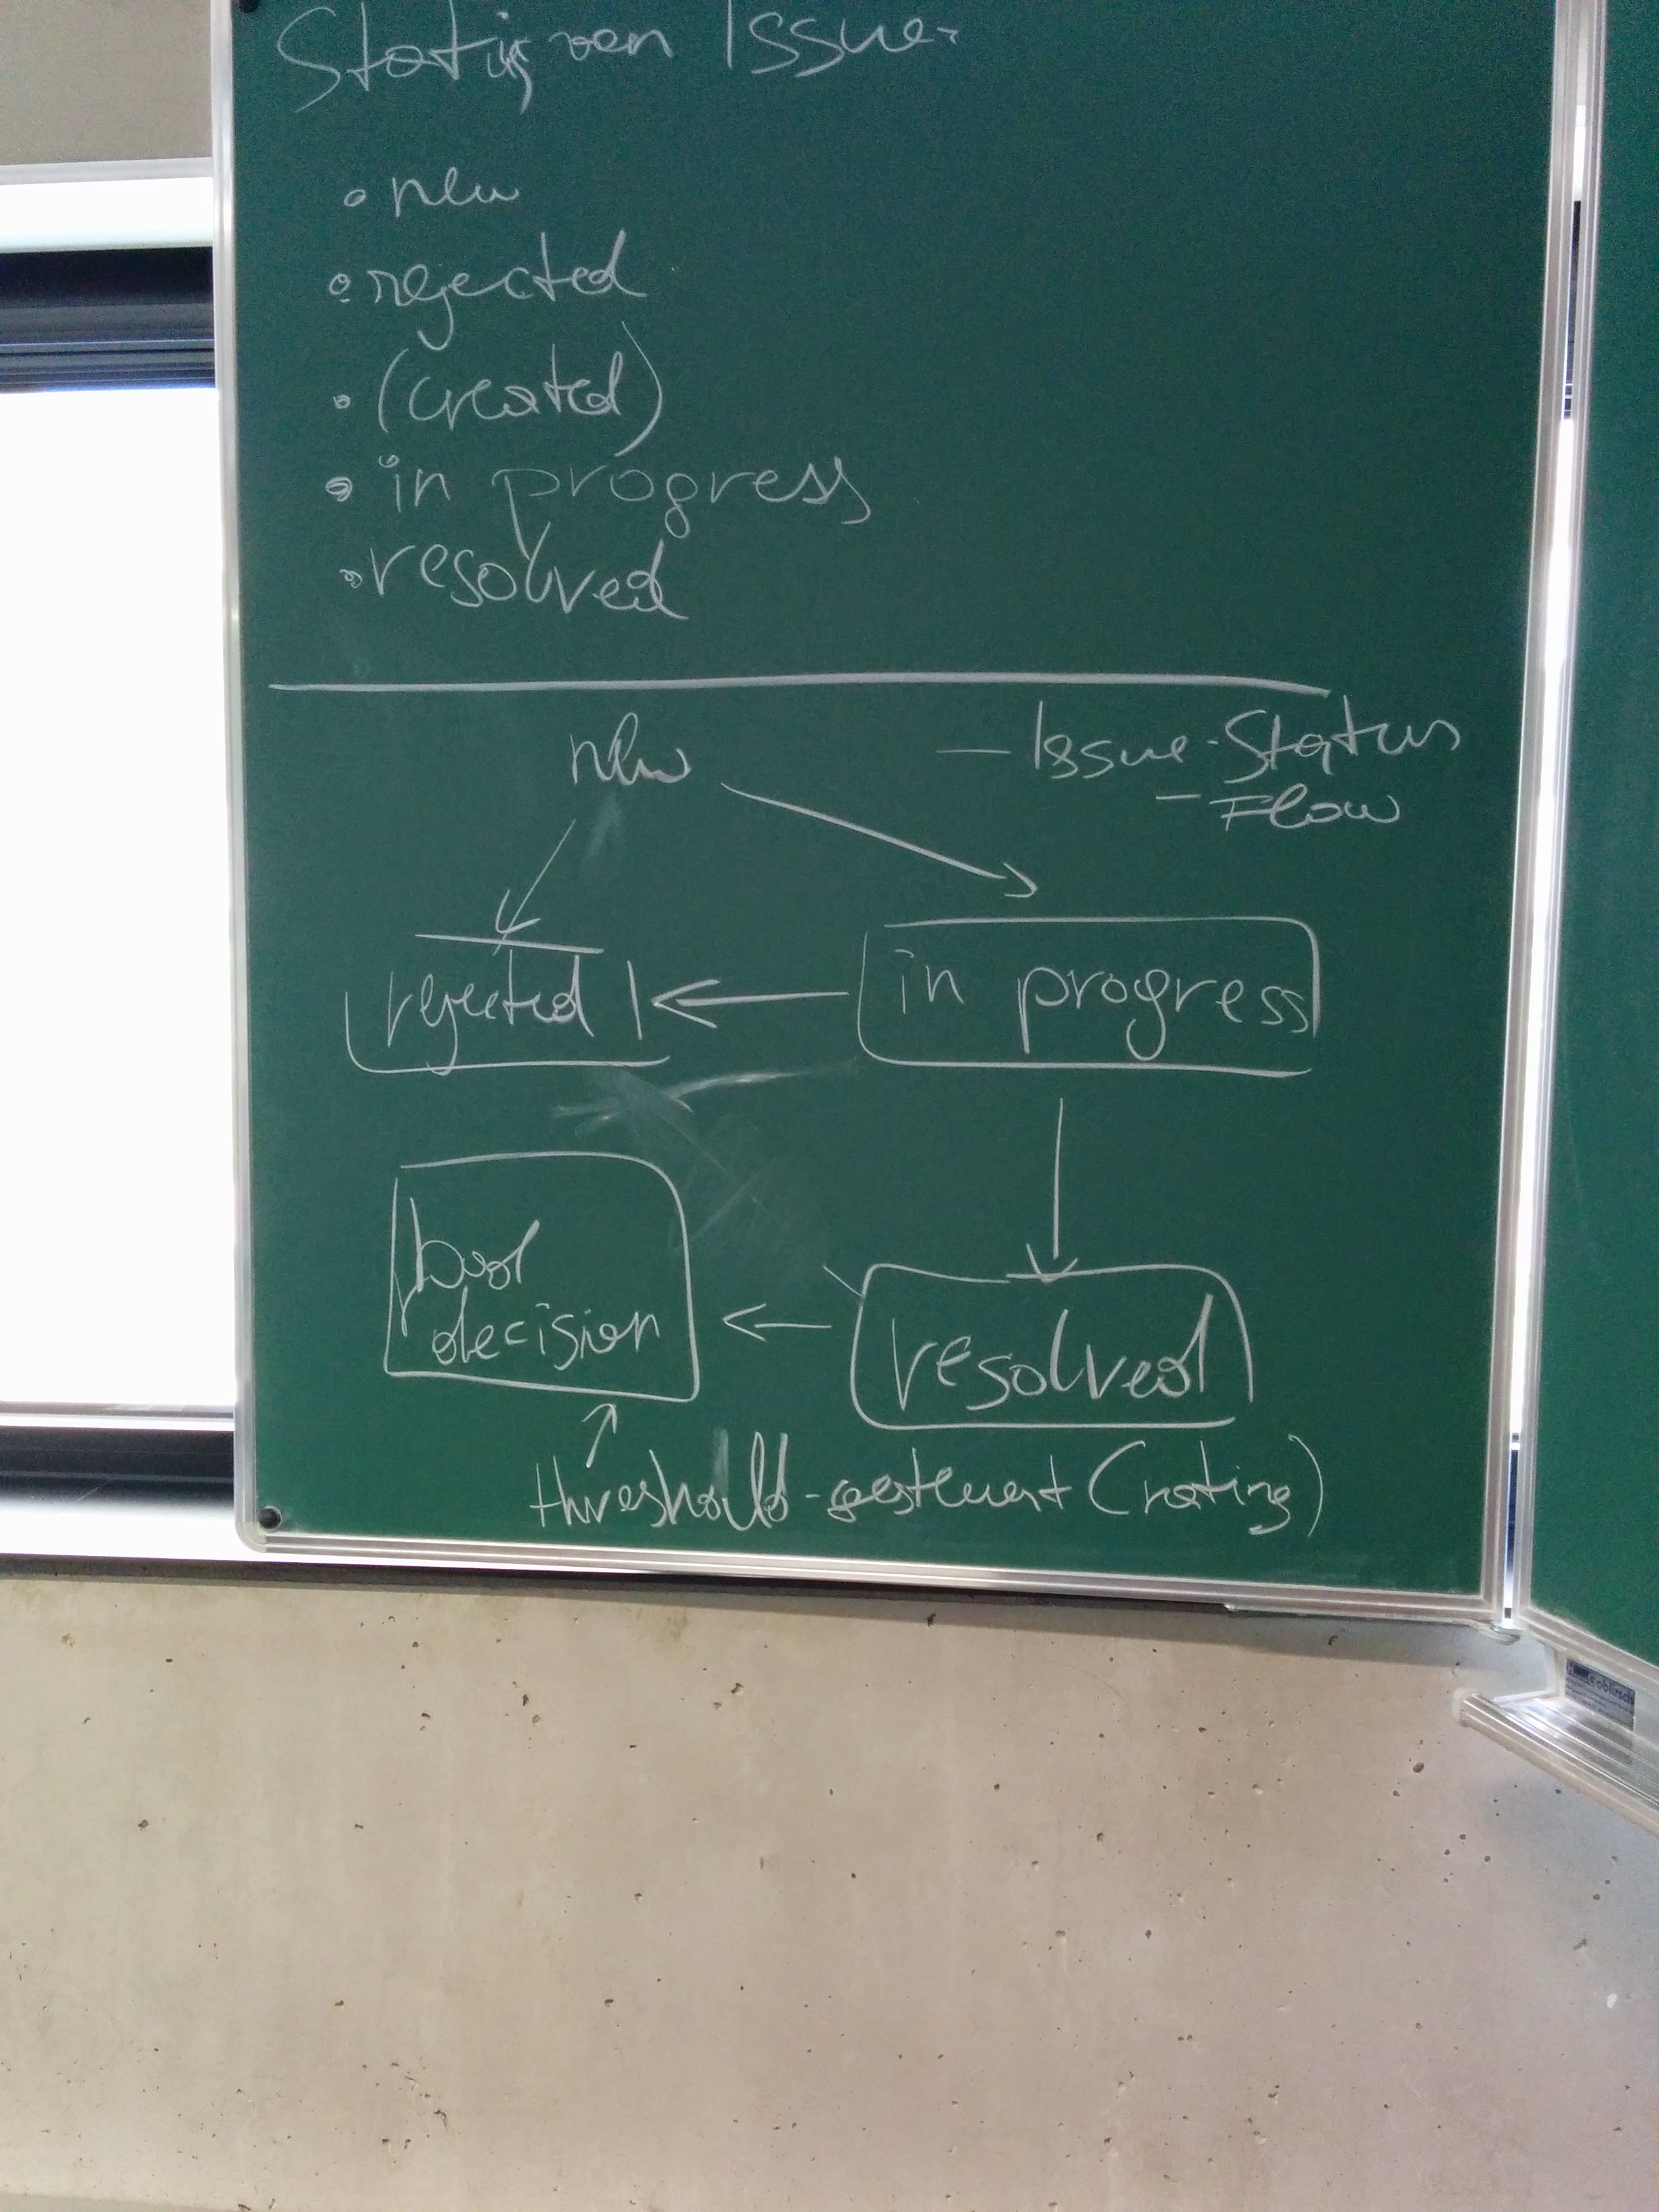 Status von Issue-
• new
• rejected
• (created)
• in progress
• resolved
new
— Issue-Status
- Flow
rejected
in progress
decision
resolved
threshold-gesteuert (rating)